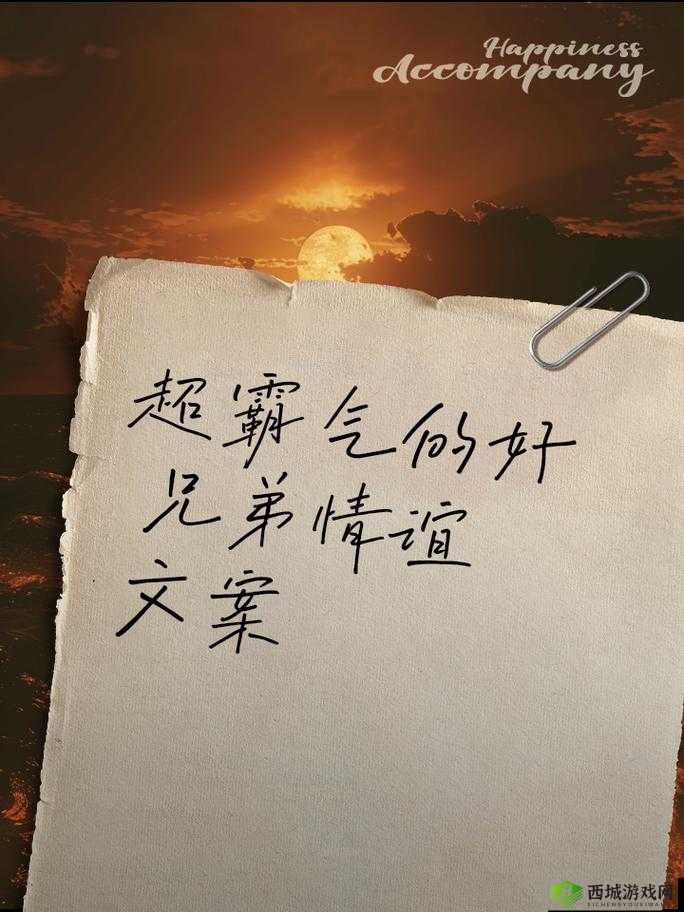 Happiness
Accompany
超霸气的好
兄弟情谊
文案
西城游戏网